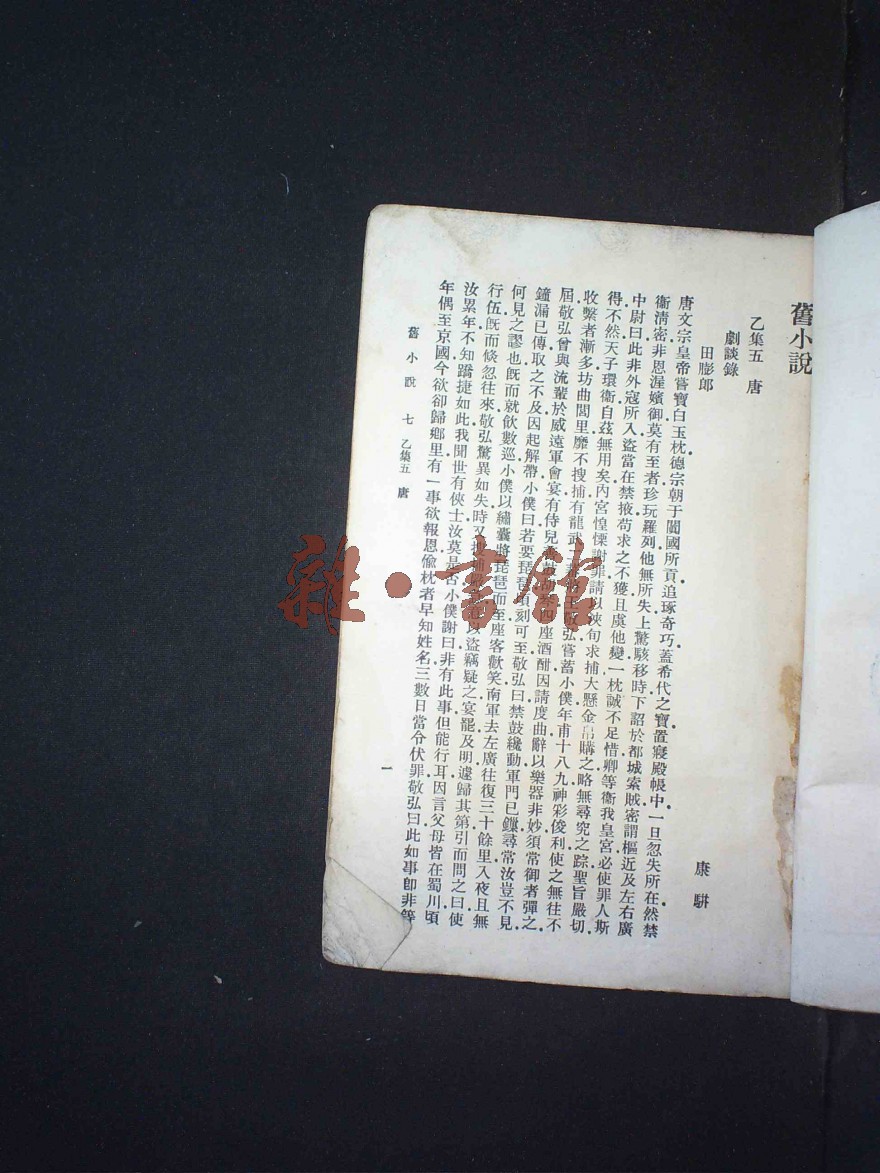 舊小說
乙集五　唐
劇談錄
康駢
田膨郎
唐文宗皇帝嘗寶白玉枕德宗朝于闐國所貢追琢奇巧蓋希代之寶置寢殿帳中一旦忽失所在然禁
衞清密非恩渥嬪御莫有至者珍玩羅列他無所失上驚駭移時下詔於都城索賊密謂樞近及左右廣
中尉曰此非外寇所入盜當在禁掖苟求之不獲且虞他變一枕誠不足惜卿等衞我皇宮必使罪人斯
得不然天子環衞自茲無用矣內宮惶慄謝罪請以浹旬求捕大懸金帛購之略無尋究之踪聖旨嚴切
收繫者漸多坊曲閭里靡不搜捕有龍武 弘嘗蓄小僕年甫十八九神彩俊利使之無往不
屆敬弘曾與流輩於威遠軍會宴有侍兒 四座酒酣因請度曲辭以樂器非妙須常御者彈之
鐘漏已傳取之不及因起解帶小僕曰若要琵琶頃刻可至敬弘曰禁鼓纔動軍門已鏁尋常汝豈不見
何見之謬也旣而就飮數巡小僕以繡囊將琵琶而至座客歡笑南軍去左廣往復三十餘里入夜且無
行伍旣而倏忽往來敬弘驚異如失時又 以盜竊疑之宴罷及明遽歸其第引而問之曰使
汝累年不知蹻捷如此我聞世有俠士汝莫是否小僕謝曰非有此事但能行耳因言父母皆在蜀川頃
年偶至京國今欲卻歸鄉里有一事欲報恩偸枕者早知姓名三數日當令伏罪敬弘曰此如事卽非等
舊小說　七　乙集五　唐
一
雜·書館